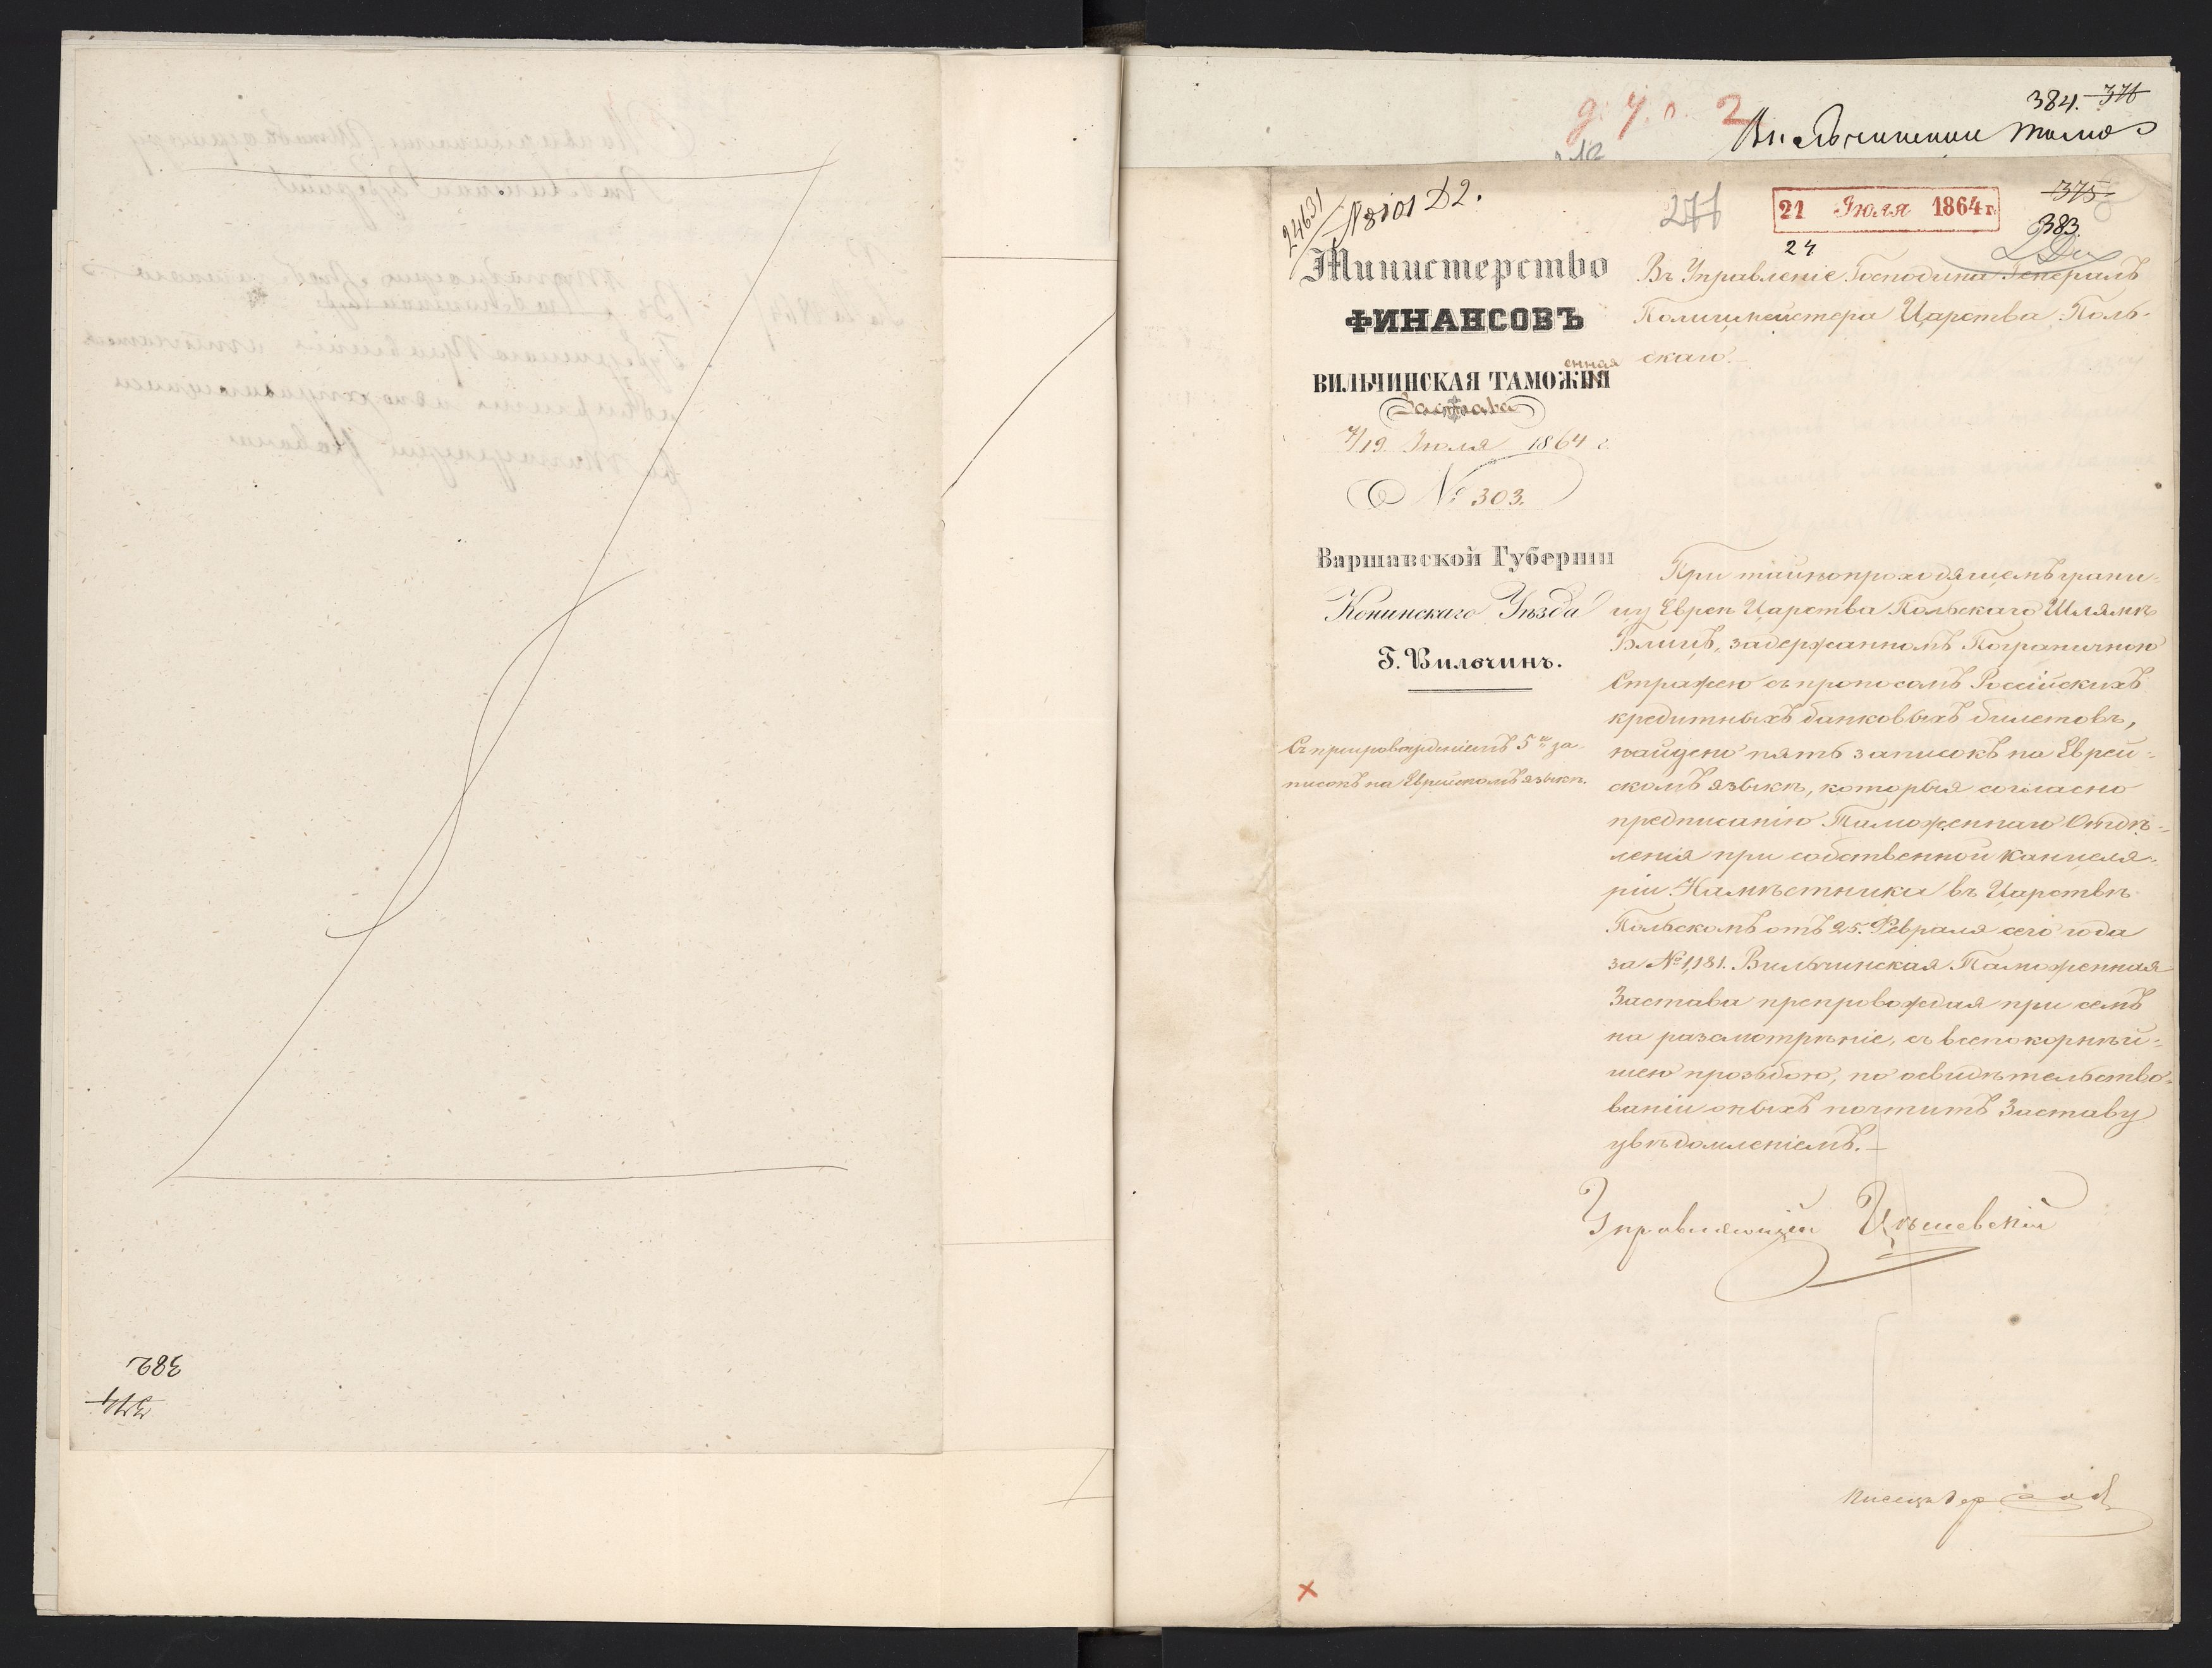 384. 376
24631
№ 8101 Д2.
277
21 Июля 1864 г.
24
375
383
Министерство
ФИНАНСОВЪ
ВИЛЬЧИНСКАЯ ТАМОЖЕННАЯ
Застава
7/19 Июля 1864 г.
№ 303.
Варшавской Губерніи
Конинскаго Уѣзда
Г. Вильчинъ.
Съ препровожденіемъ 5и за-
писокъ на Еврейскомъ языкѣ.
Въ Управленіе Господина Генералъ
Полицмейстера Царства Поль-
скаго.
При тайнопроходящемъ грани-
цу Евреѣ Царства Польскаго Шлямѣ
Блицъ, задержанномъ Пограничною
Стражею съ проносомъ Россійскихъ
кредитныхъ банковыхъ билетовъ,
найдено пять записокъ на Еврей-
скомъ языкѣ, которыя согласно
предписанію Таможеннаго Отдѣ-
ленія при собственной Канцеля-
ріи Намѣстника въ Царствѣ
Польскомъ отъ 25. Февраля сего года
за № 1,181. Вильчинская Таможенная
Застава препровождая при семъ
на разсмотрѣніе, съ всепокорнѣй-
шею прозьбою, по освидѣтельство-
ваніи оныхъ почтить Заставу
увѣдомленіемъ.
Управляющій Цѣшевскій
382
374